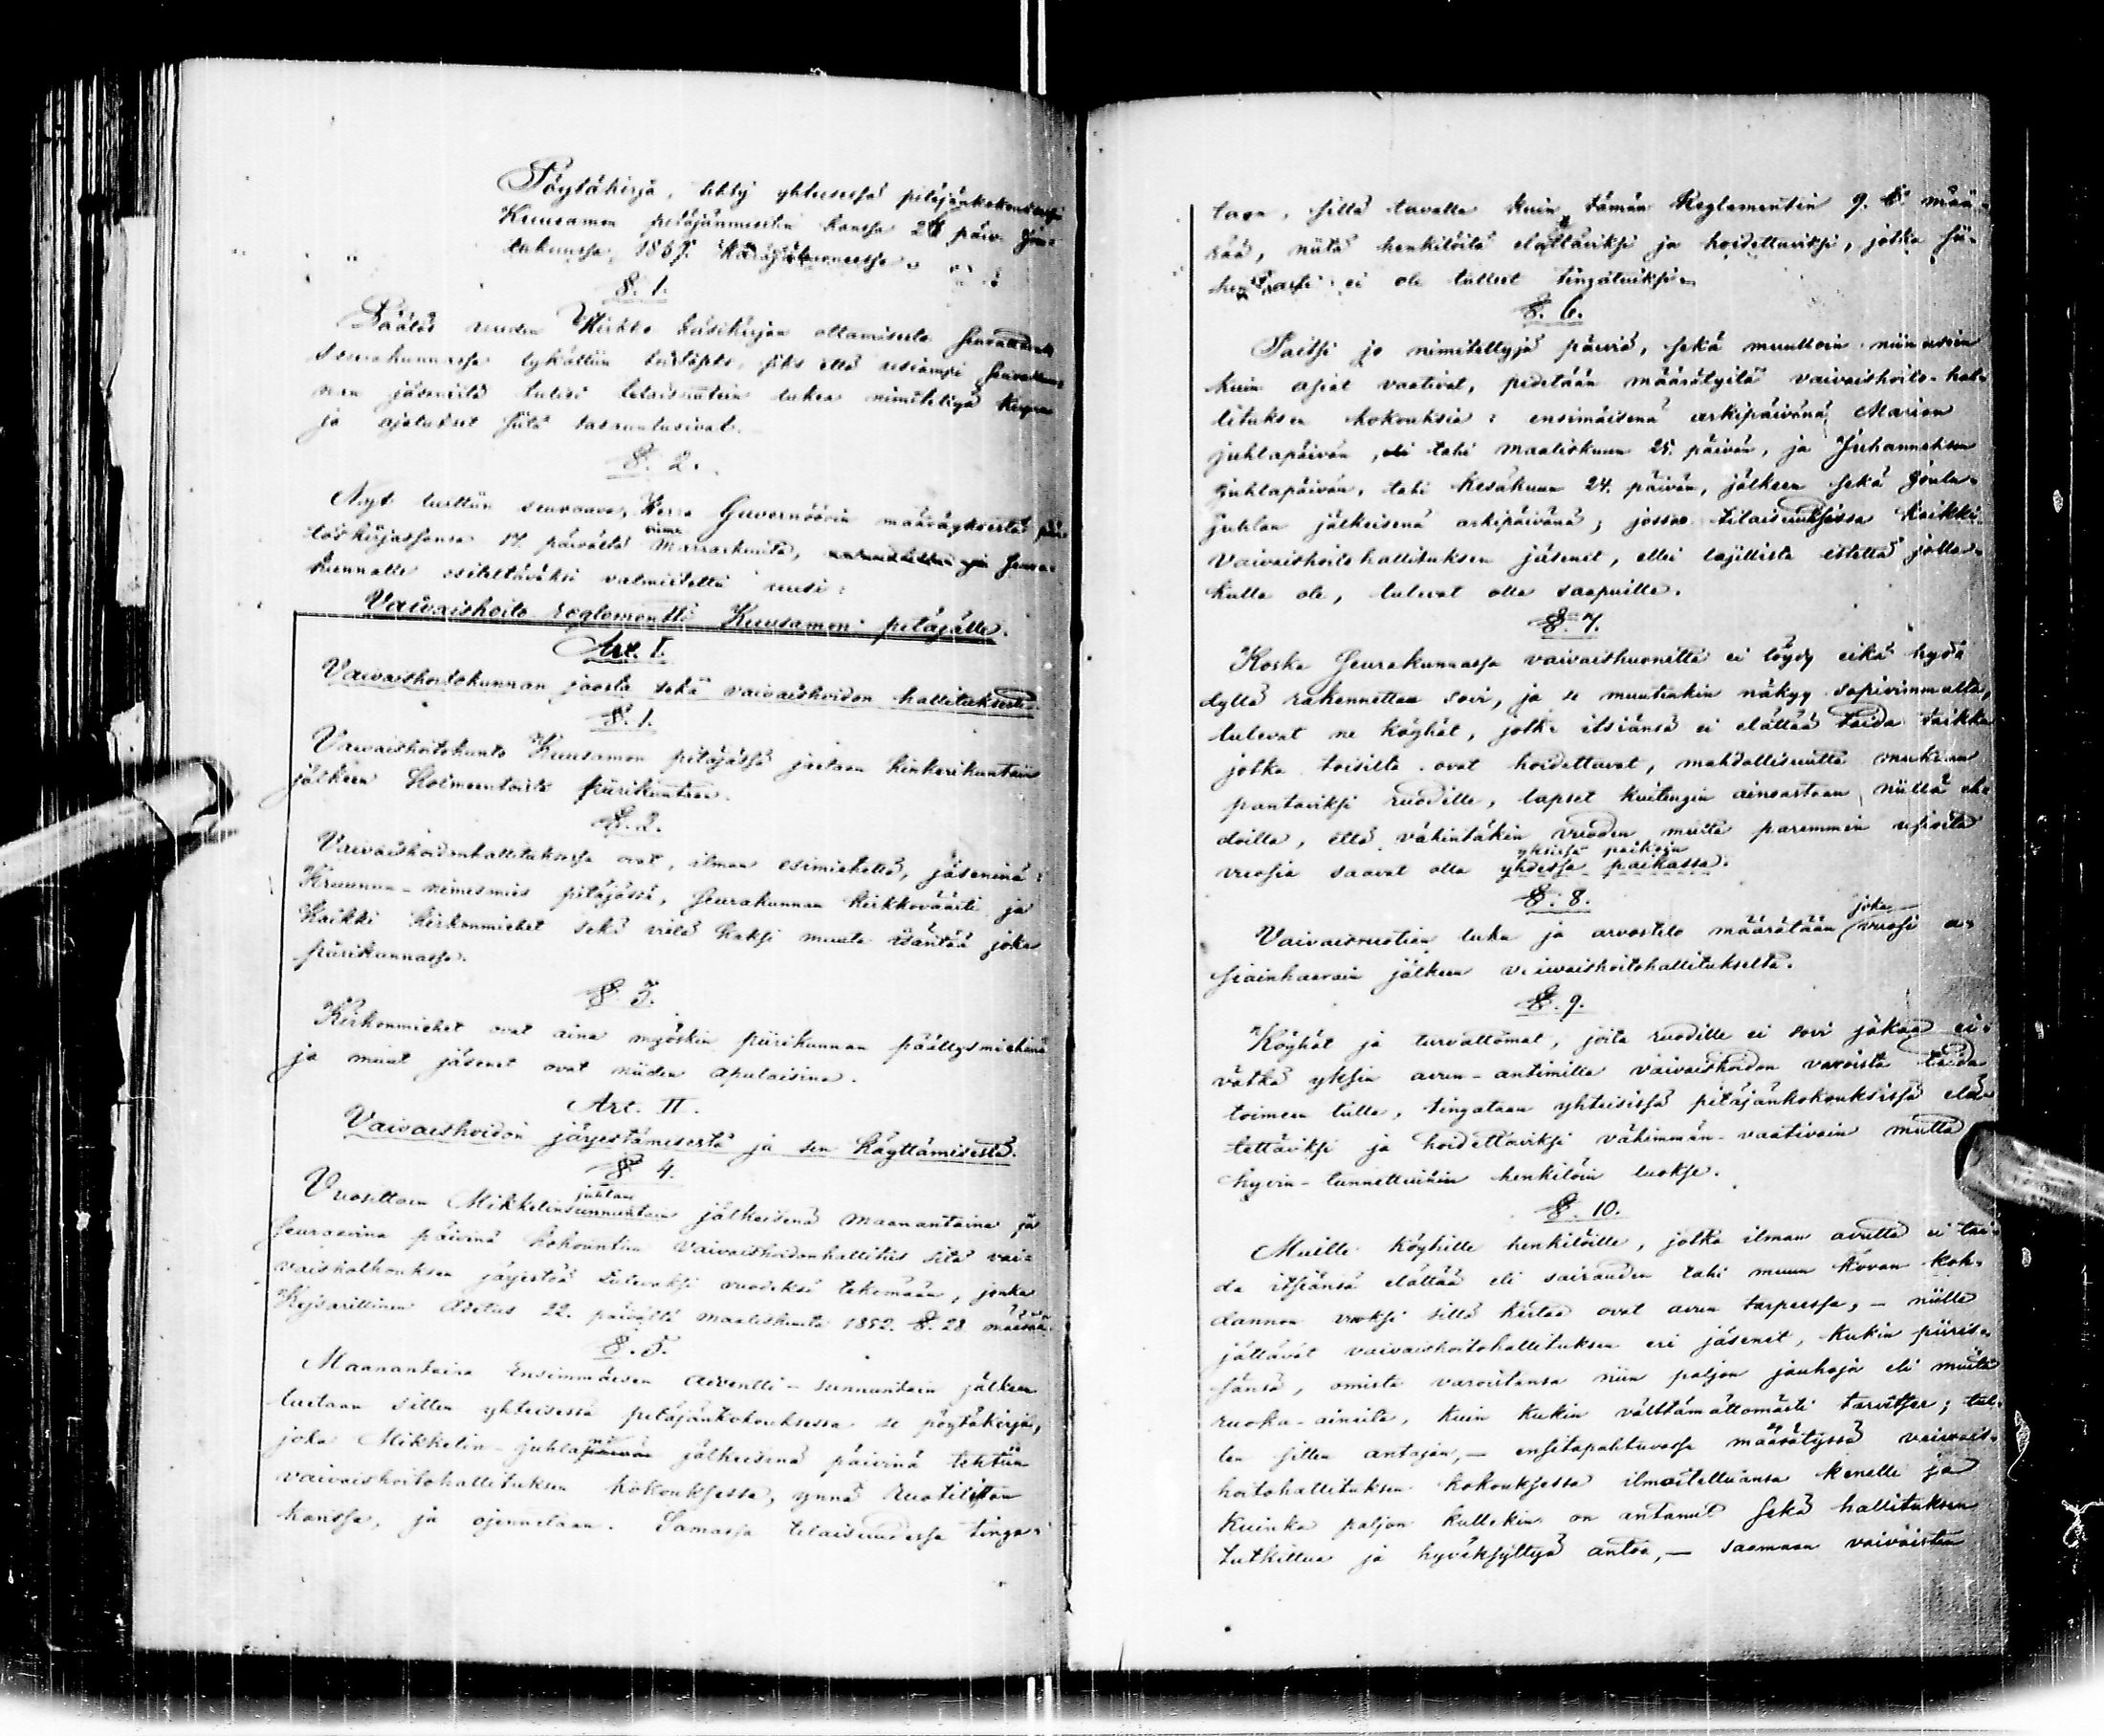 Pöytäkirja, tehty yhteisessä pitäjänkokouksessa
Kuusamon pitäjänmiestin kanssa päiv. Jou-
lukuussa, 1869.
§. 1.
Päätös uuden Kirkko käsikirjan ottamisesta
Seurakunnassa lykättiin siks että useampi
jäseniltä tulisi tilaisuuteen lukea nimitettyä
ja ajatukset siitä
§. 2.
Nyt luettiin seuraava, Herra Guvernöörin määräyksestä
17. päivältä viime Marraskuuta,
kunnalle esiteltäväksi valmistettu uusi:
Vaivaishoito reglementti Kuusamon pitäjälle.
Art. I.
Vaivaishoitokunnan jaosta sekä vaivaishoidon hallituksesta.
§. 1.
Vaivaishoitokunta Kuusamon pitäjässä jaetaan kinkerikuntain
jälkeen kolmeentoista piirikuntaan.
§. 2.
Vaivaishoidonhallituksessa ovat, ilman esimiehettä, jäseninä:
Kruunun-nimesmies pitäjässä, Seurakunnan kirkkoväärti ja
kaikki kirkonmiehet sekä vielä kaksi muuta isäntää joka
piirikunnassa.
§. 3.
Kirkonmiehet ovat aina myöskin piirikunnan päällysmiehinä
ja muut jäsenet ovat niiden apulaisina.
Art. II.
Vaivaishoidon järjestämisestä ja sen käyttämisestä.
§ 4.
juhlan
Vuosittain Mikkelinsunnuntain jälkeisenä maanantaina ja
seuraavina päivinä kokountuu Vaivaishoidonhallitus sitä vai-
vaisholhouksen järjestöä tulevaksi vuodeksi tekemään, jonka
Kejsarillinen Asetus 22. päivältä maaliskuuta 1852. §. 28 määrää.
§. 5.
Maanantaina Ensimmäisen adventti-sunnuntain jälkeen
luetaan sitten yhteisessä pitäjänkokouksessa se pöytäkirja,
joka Mikkelin-juhlapäivän jälkeisinä päivinä tehtiin
vaivaishoitohallituksen kokouksessa, ynnä ruotilistan
kanssa, ja ojennetaan. Samassa tilaisuudessa tinga-
taan, sillä tavalla kuin tämän Reglementin 9. § mää-
rää, niitä henkilöitä elättäviksi ja hoidettaviksi, jotka sii-
hen asti ei ole tulleet tingatuiksi.
§. 6.
Paitsi jo nimitettyjä päiviä, sekä muulloin niin usein
kuin asiat vaativat, pidetään määrätyitä vaivaishoito-hal-
lituksen kokouksia: ensimäisenä arkipäivänä Marian
juhlapäivän, tahi maaliskuun 25. päivän, ja Juhanneksen
juhlapäivän, tahi kesäkuun 24. päivän, jälkeen sekä Joulu-
juhlan jälkeisenä arkipäivänä; jossa tilaisuuksissa kaikki
vaivaishoitohallituksen jäsenet, ellei lajillista estettä jolla-
kulla ole, tulevat olla saapuilla.
§. 7.
Koska Seurakunnassa vaivaishuonetta ei löydy eikä hyödy-
llyltä rakennettaa sovi, ja se muutenkin näkyy sopivimmalta,
tulevat ne köyhät, jotka itsiänsä ei elättää taida taikka
jotka toisilta ovat hoidettavat, mahdollisuutta mukaan
pantaviksi ruodille, lapset kuitengin ainoastaan niillä eh-
doilla, että vähintäkin vuoden mutta paremmin usieita
yksissä paikoin
vuosia saavat olla yhdessä paikassa.
§. 8.
joka
Vaivaisruotien luku ja arvostelo määrätään vuosi a-
sianhaarain jälkeen vaivaishoitohallitukselta.
§. 9.
Köyhät ja turvattomat, joita ruodille ei sovi jakaa ei-
vätkä yksin avun-antimilla vaivaishoidon varoista taida
toimeen tulla, tingataan yhteisissä pitäjänkokouksissa elä-
tettäviksi ja hoidettaviksi vähimmän-vaativain mutta
hyvin-tunnettuiden henkilöin luokse.
§. 10.
Muille köyhille henkilöille, jotka ilman avutta ei tai-
da itsiänsä elättää eli sairauden tahi muun kovan koh-
dannon vuoksi sillä kertaa ovat avun tarpeessa, — niille
jättävät vaivaishoitohallituksen eri jäsenet, kukin piiris-
sänsä, omista varoistansa niin paljon jauhoja eli muita
ruoka-aineita, kuin kukin välttämättömästi tarvitsee; tul-
len sitten antajan, — ensitapahtuvassa määrätyssä vaivais-
hoitohallituksen kokouksessa ilmoitettuansa kenelle ja
kuinka paljon kullekin on antanut sekä hallituksen
tutkittua ja hyväksyttyä antoa, — saamaan vaivaisten